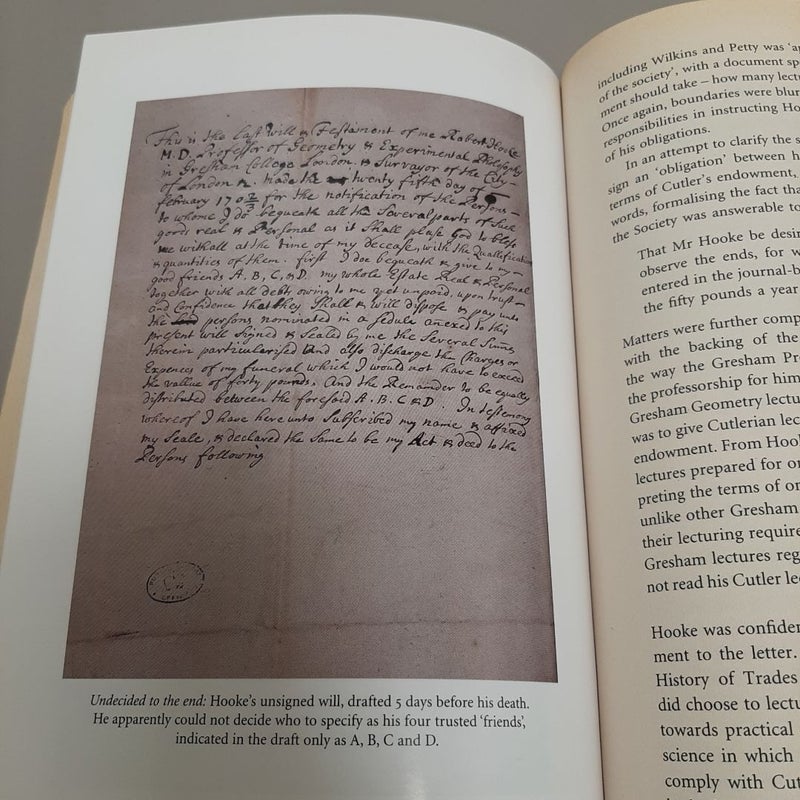 This is the last will & Testament of me Robert Hooke
M.D. Professor of Geometry & Experimental Philosophy
in Gresham College London. & Surveyor of the City
of London &. made the twenty fifth day of
february 170 2/3 for the notification of the Persons
to whome I do bequeath all the Severall parts of Such
goods real & Personal as it Shall please God to bless
me withall at the time of my decease, with the Quallifications
& quantities of them. first I doe bequeath & give to my
good friends A, B, C, & D. my whole Estate Real & Personal
together with all debts owing to me yet unpaid, upon trust
and Confidence that they Shall & will dispose & pay unto
the persons nominated in a sedula anexed to this
present will Signed & Sealed by me the Several Sums
therein particularised And also discharge the Charges or
Expences of my funeral which I would not have to exceed
the vallue of forty pounds. And the Remander to be equally
distributed between the foresaid A. B. C & D. In testemony
whereof I have here unto Subscribed my name & affixed
my Seale, & declared the Same to be my Act & deed to the
Persons following
Undecided to the end: Hooke's unsigned will, drafted 5 days before his death.
He apparently could not decide who to specify as his four trusted 'friends',
indicated in the draft only as A, B, C and D.
including Wilkins and Petty was
of the society', with a document
ment should take – how many
Once again, boundaries were
responsibilities in instructing
of his obligations.
In an attempt to clarify the
sign an 'obligation' between
terms of Cutler's endowment,
words, formalising the fact
the Society was answerable to
That Mr Hooke be
observe the ends, for
entered in the journal-
the fifty pounds a year
Matters were further
with the backing of the
the way the Gresham
the professorship for him
Gresham Geometry
was to give Cutlerian
endowment. From
lectures prepared for
preting the terms of
unlike other Gresham
their lecturing
Gresham lectures
not read his Cutler
Hooke was
ment to the letter.
History of Trades
did choose to
towards practical
science in which
comply with